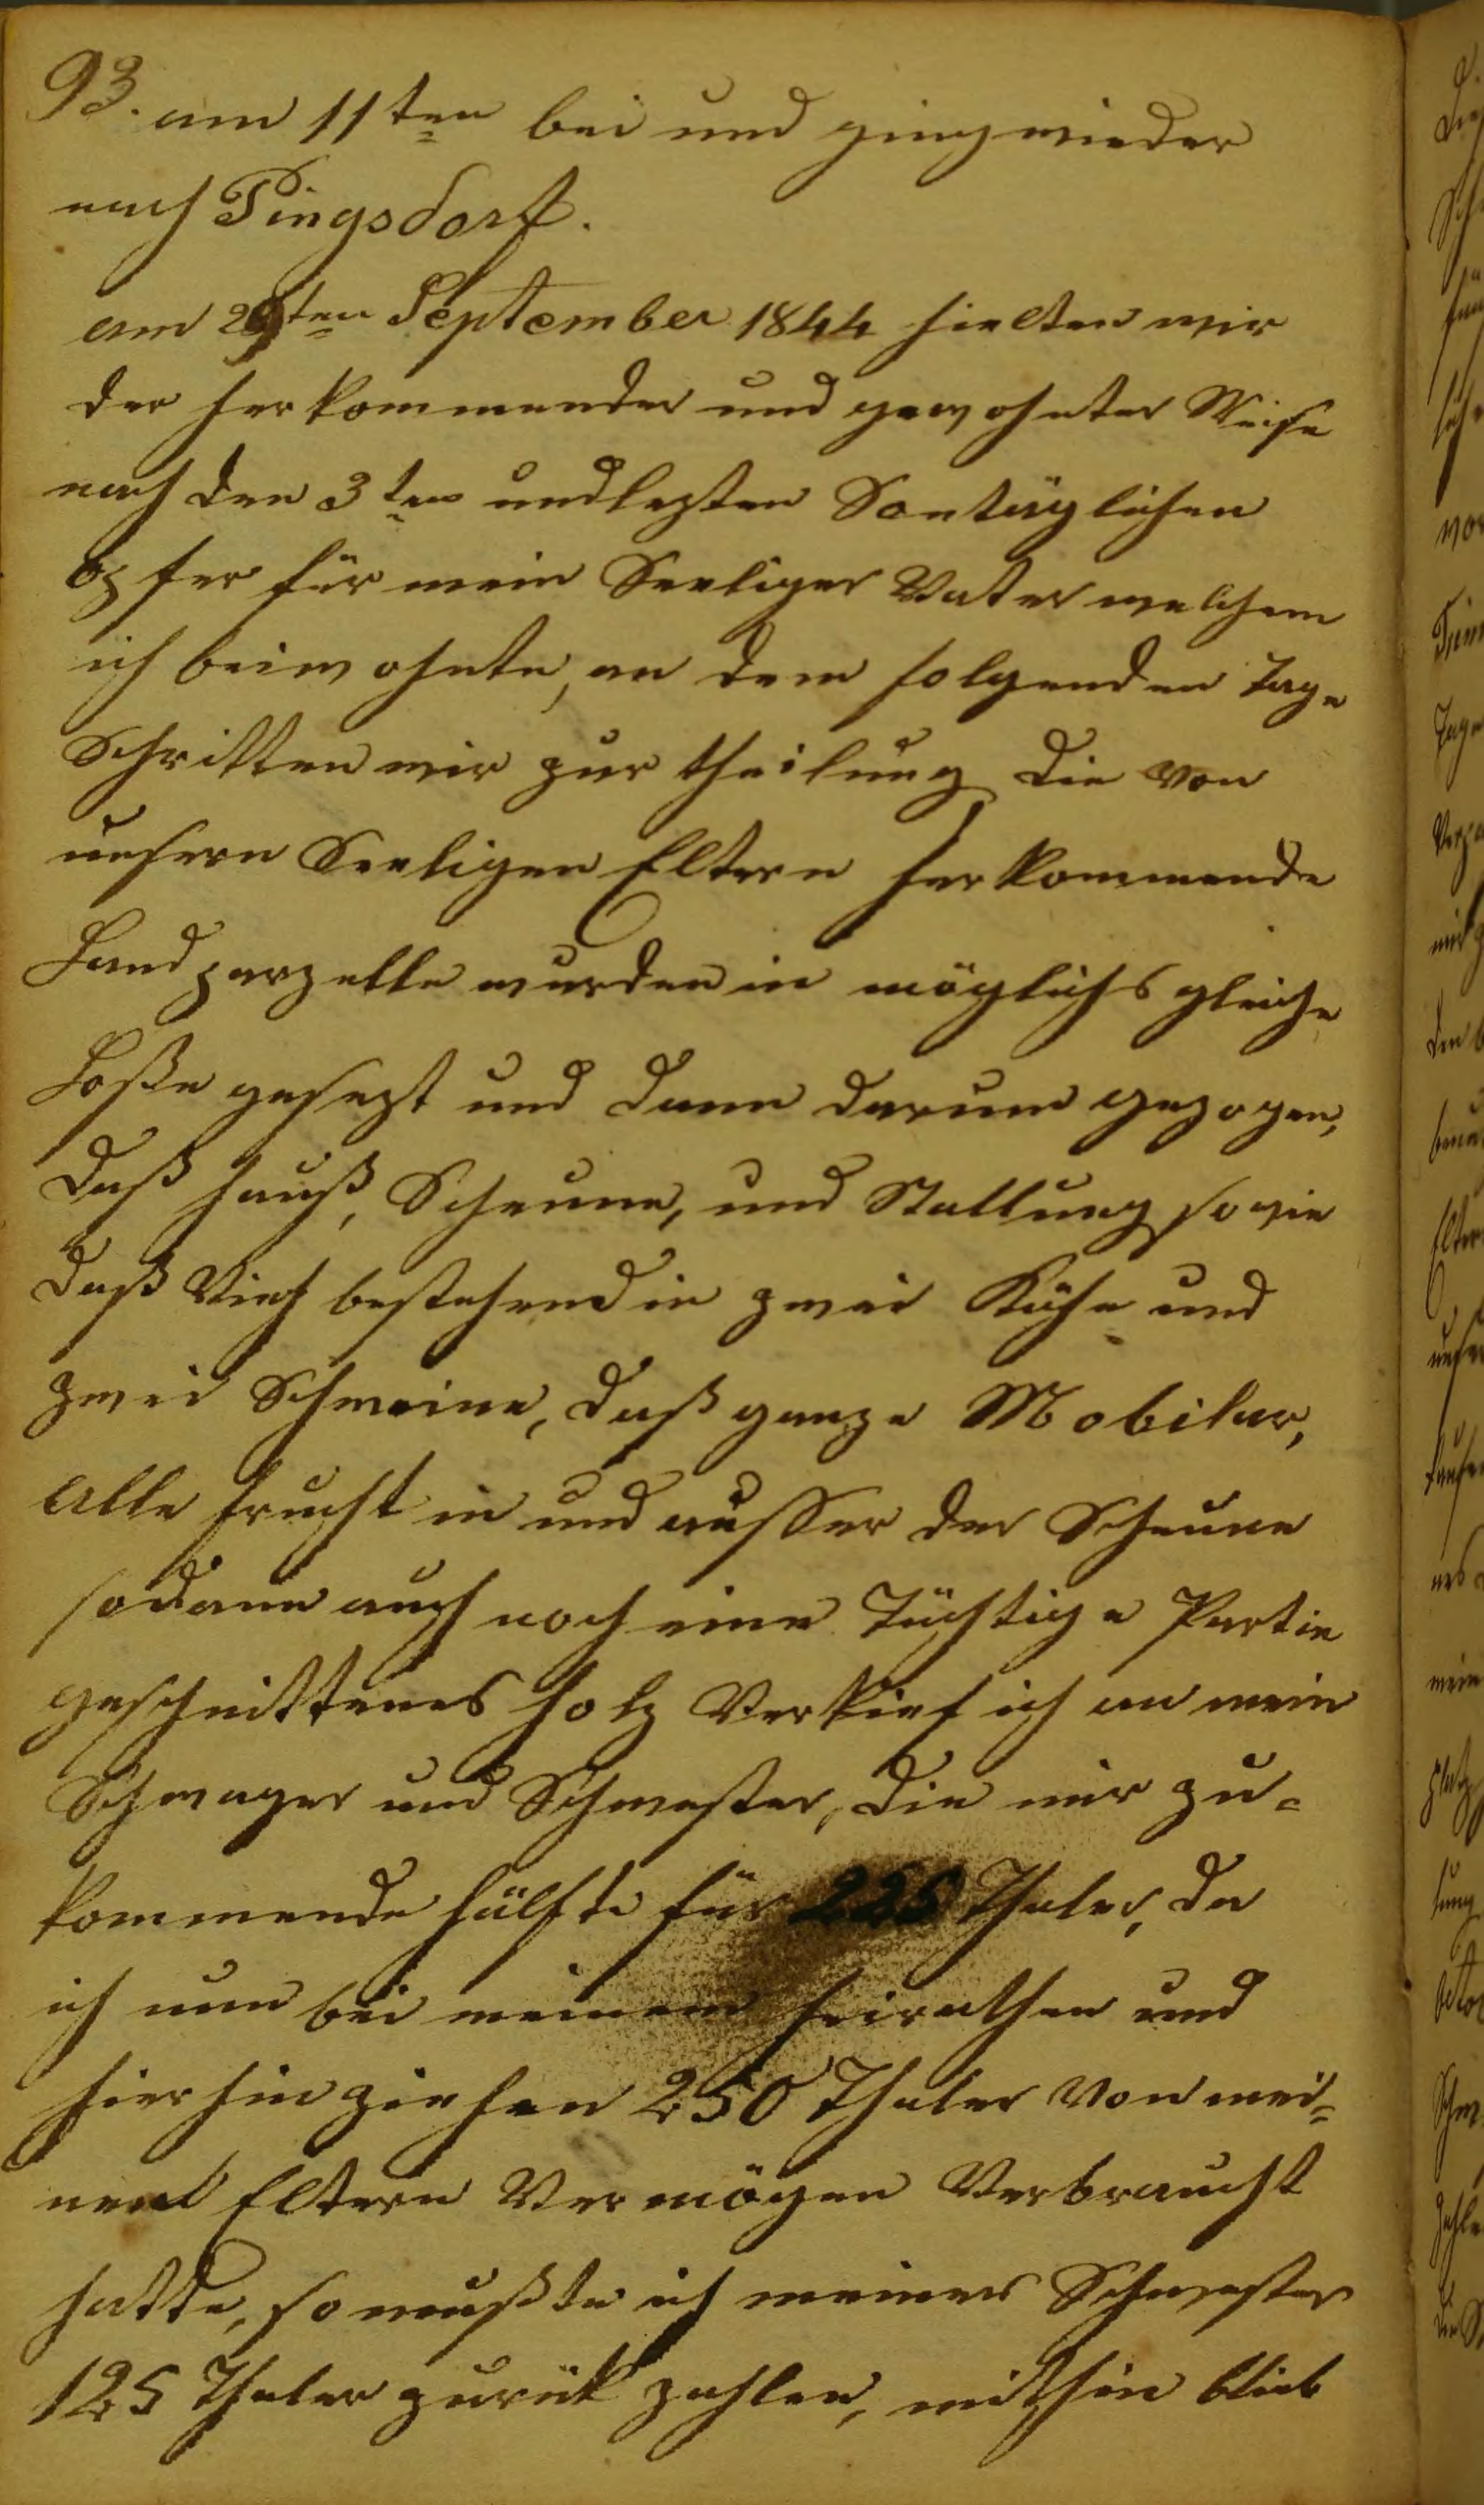 93. am 11ten bei und ging wieder
nach Pingsdorf.
am 29ten September 1844 hielten wir
der herkommender und gewohnter Weise
nach den 3ten und lezten Sontäglichen
opfer für mein Seeliger Vater welchem
ich beiwohnte, an dem folgenden Tage
Schritten wir zur theilung die von
unsern Seeligen Eltern herkommende
Landparzelle wurden in möglichs gleiche
Loße gesezt und dann darum gezogen,
daß hauß, Scheune, und Stallung sowie
daß Vieh bestehend in zwei Kühe und
zwei Schweine, daß ganze Mobilar,
alle frucht in und ausser der Scheune
sodann auch noch eine Tüchtige Partie
geschnittenes holz Verkief ich an mein
Schwager und Schwester, die mir zu-
kommende hälfte für 225 Thaler, da
ich nun bei meinem heirathen und
hierhin ziehen 250 Thaler Von mei-
nen Eltern Vermögen Verbraucht
hatte, so mußte ich meiner Schwester
125 Thaler zurük zahlen, mithin blieb